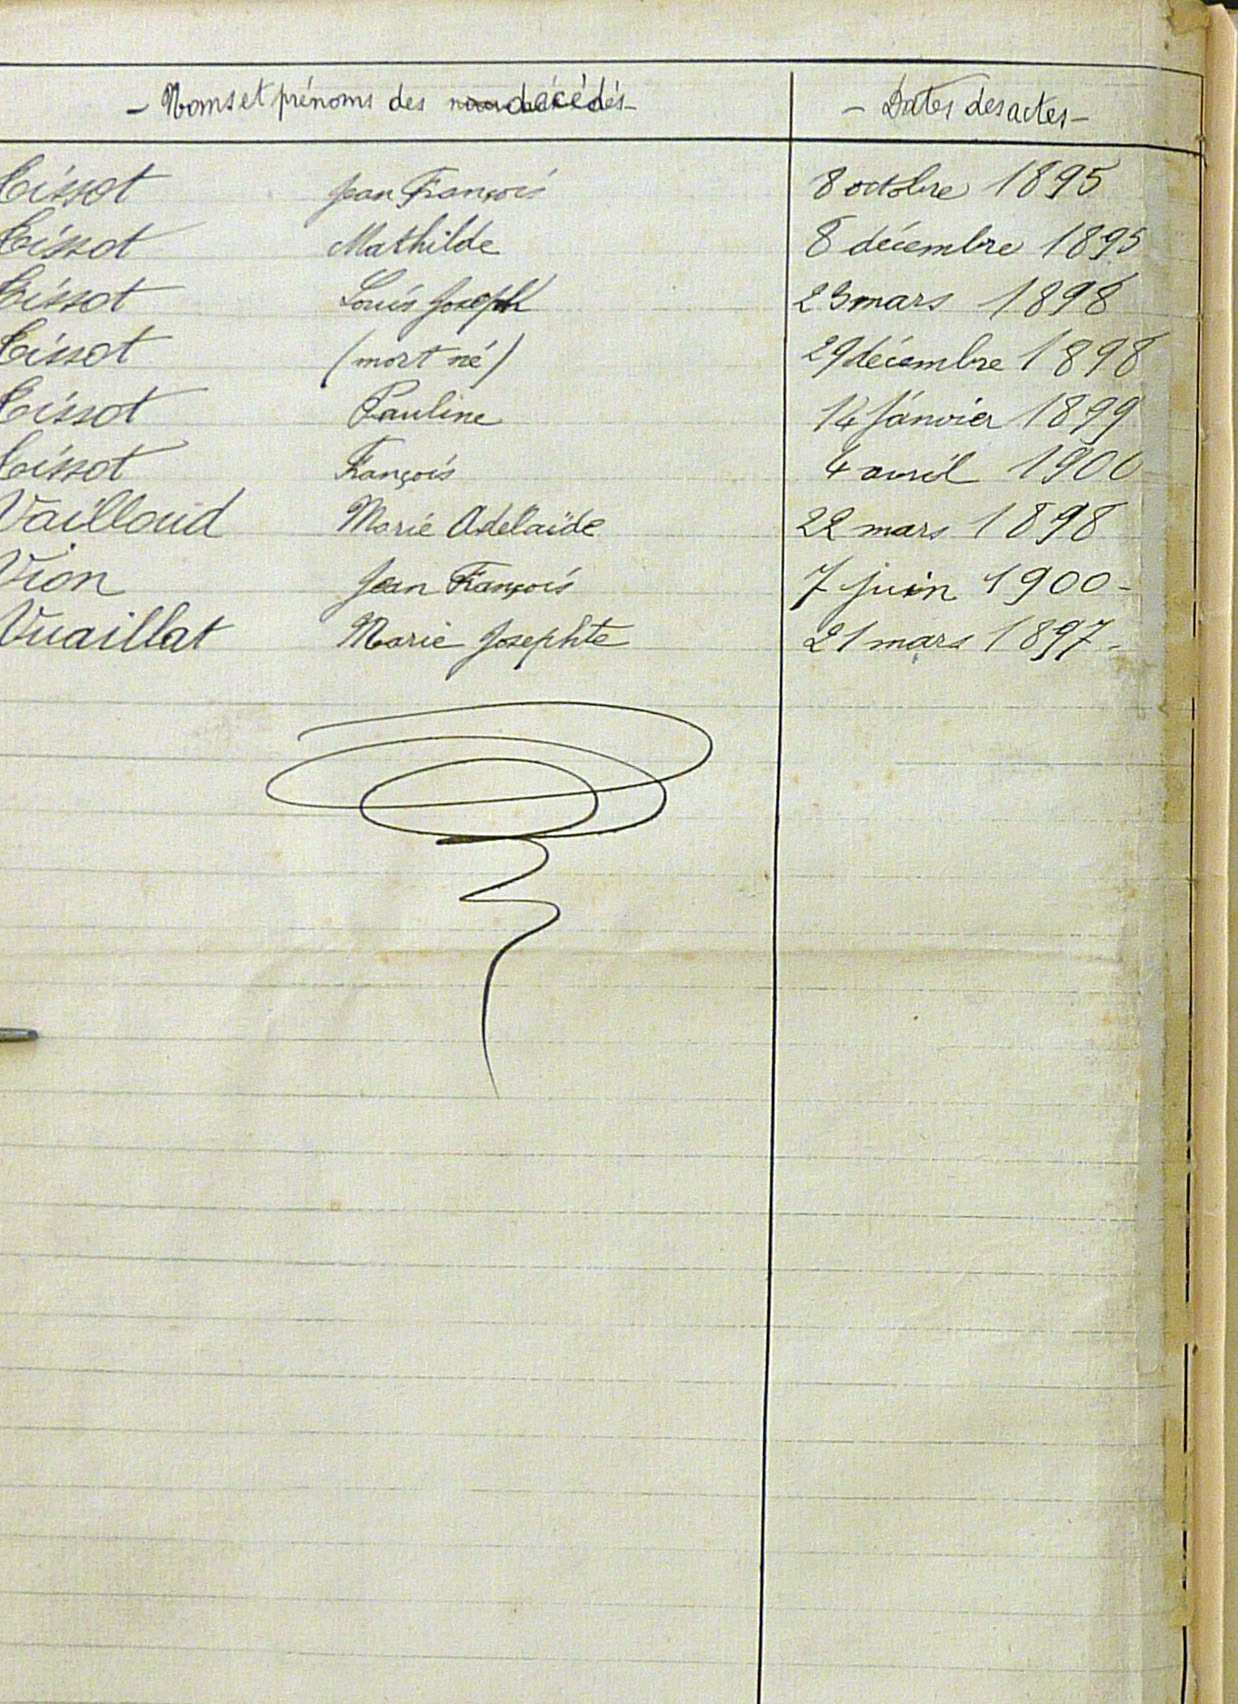 – Noms et prénoms des décédés –  – Dates des actes –
Tissot Jean François 8 octobre 1895
Tissot Mathilde 8 décembre 1895
Tissot Louis Joseph 23 mars 1898
Tissot (mort né) 29 décembre 1898
Tissot Pauline 14 Janvier 1899
Tissot François 4 avril 1900
Vailloud Marie Adelaïde 22 mars 1898
Vion Jean François 7 juin 1900 –
Vuaillat Marie Josephte 21 mars 1897 –